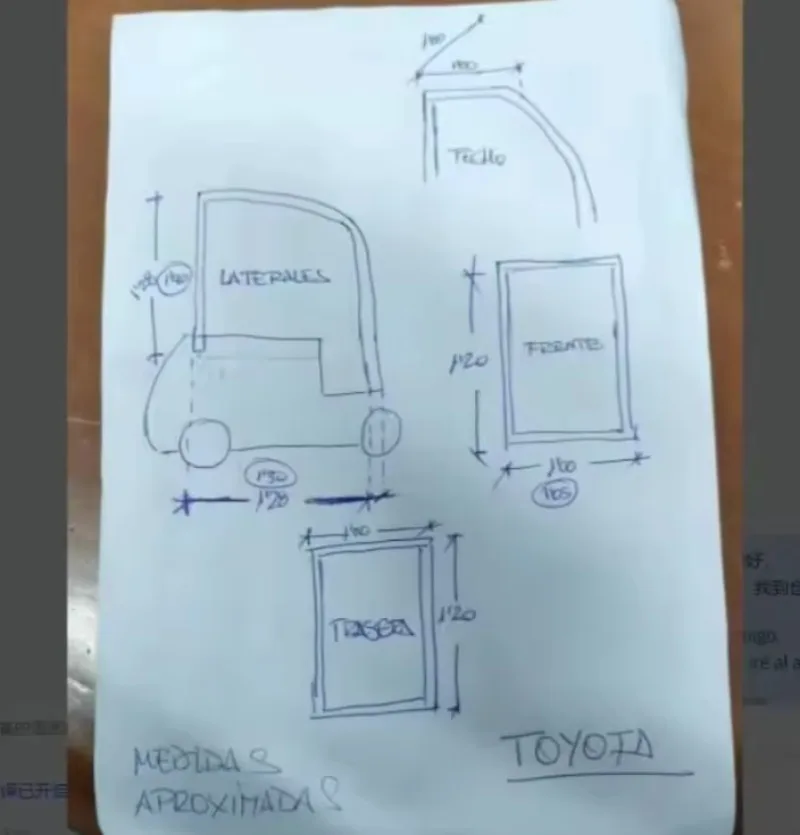 1'00
1'00
TECHO
1'20
1'40
LATERALES
FRENTE
1'20
1'30
1'20
1'00
1'05
1'00
TRASERA
1'20
MEDIDAS
APROXIMADAS
TOYOTA